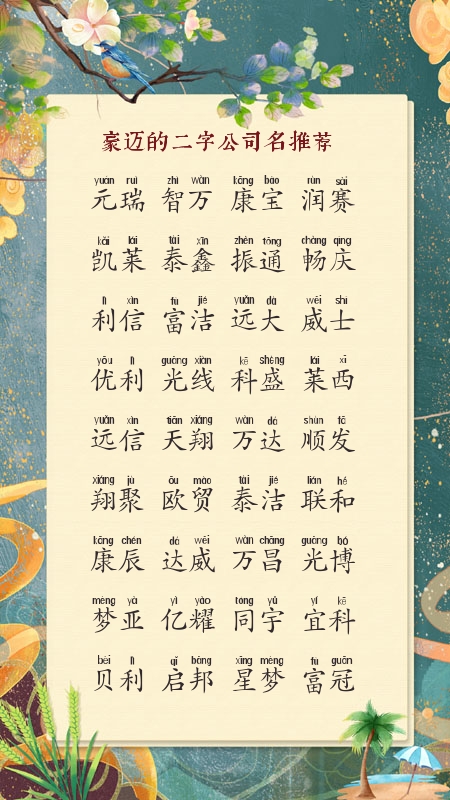 豪迈的二字公司名推荐
yuán ruì zhì wàn kāng bǎo rùn sài
元瑞 智万 康宝 润赛
kǎi lái tài xīn zhèn tōng chàng qìng
凯莱 泰鑫 振通 畅庆
lì xìn fù jié yuǎn dà wēi shì
利信 富洁 远大 威士
yōu lì guāng xiàn kē shèng lái xī
优利 光线 科盛 莱西
yuǎn xìn tiān xiáng wàn dá shùn fā
远信 天翔 万达 顺发
xiáng jù ōu mào tài jié lián hé
翔聚 欧贸 泰洁 联和
kāng chén dá wēi wàn chāng guāng bó
康辰 达威 万昌 光博
mèng yà yì yào tóng yǔ yí kē
梦亚 亿耀 同宇 宜科
bèi lì qǐ bāng xīng mèng fù guān
贝利 启邦 星梦 富冠